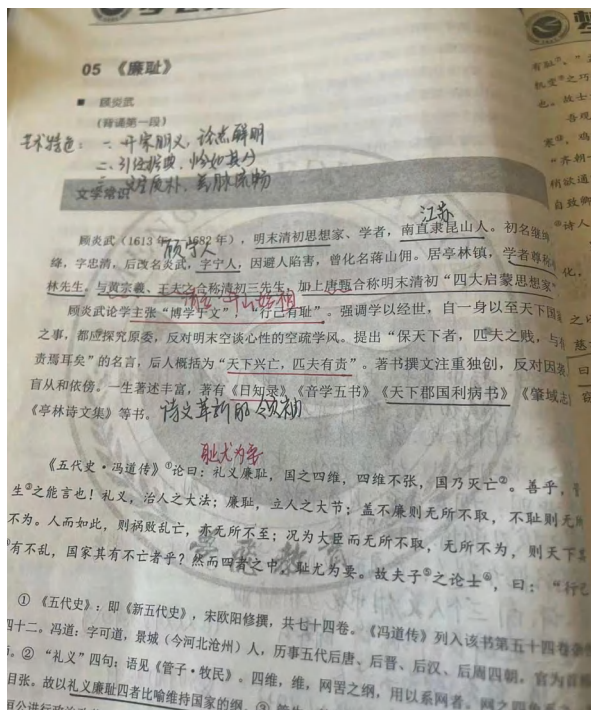 05 《廉耻》
■ 顾炎武
(背诵第一段)
艺术特色: 一、开宗明义,论点鲜明
二、引经据典,恰如其分
文学常识
江苏
顾炎武(1613年 682年),明末清初思想家、学者,南直隶昆山人。初名继
顾学人
绛,字忠清,后改名炎武,字宁人,因避人陷害,曾化名蒋山佣。居亭林镇,学者尊称
林先生。与黄宗羲、王夫之合称清初三先生,加上唐甄合称明末清初“四大启蒙思想家”
顾炎武论学主张“博学于文”,“行己有耻”。强调学以经世,自一身以至天下国
之事,都应探究原委,反对明末空谈心性的空疏学风。提出“保天下者,匹夫之贱,与
责焉耳矣”的名言,后人概括为“天下兴亡,匹夫有责”。著书撰文注重独创,反对因
盲从和依傍。一生著述丰富,著有《日知录》《音学五书》《天下郡国利病书》《肇域志
《亭林诗文集》等书。 诗文革新的领袖
耻尤为要
《五代史·冯道传》①论曰:礼义廉耻,国之四维,四维不张,国乃灭亡②。善乎,
生③之能言也!礼义,治人之大法;廉耻,立人之大节;盖不廉则无所不取,不耻则无所
不为。人而如此,则祸败乱亡,亦无所不至;况为大臣而无所不取,无所不为,则天下其
有不乱,国家其有不亡者乎?然而四者之中,耻尤为要。故夫子⑤之论士⑥,曰:“行己
① 《五代史》:即《新五代史》,宋欧阳修撰,共七十四卷。《冯道传》列入该书第五十四卷杂
四十二。冯道:字可道,景城(今河北沧州)人,历事五代后唐、后晋、后汉、后周四朝,官为
② “礼义”四句:语见《管子·牧民》。四维,维,网罟之纲,用以系网者。
目张。故以礼义廉耻四者比喻维持国家的纲。
有耻
机变
也。故士
吾观
寒
“齐朝
稍欲通
自致卿
诗人
化,